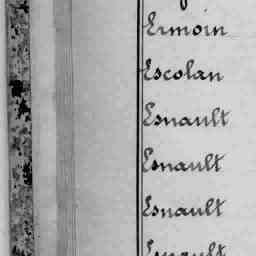 Ermoin
Escolan
Esnault
Esnault
Esnault
Esnault